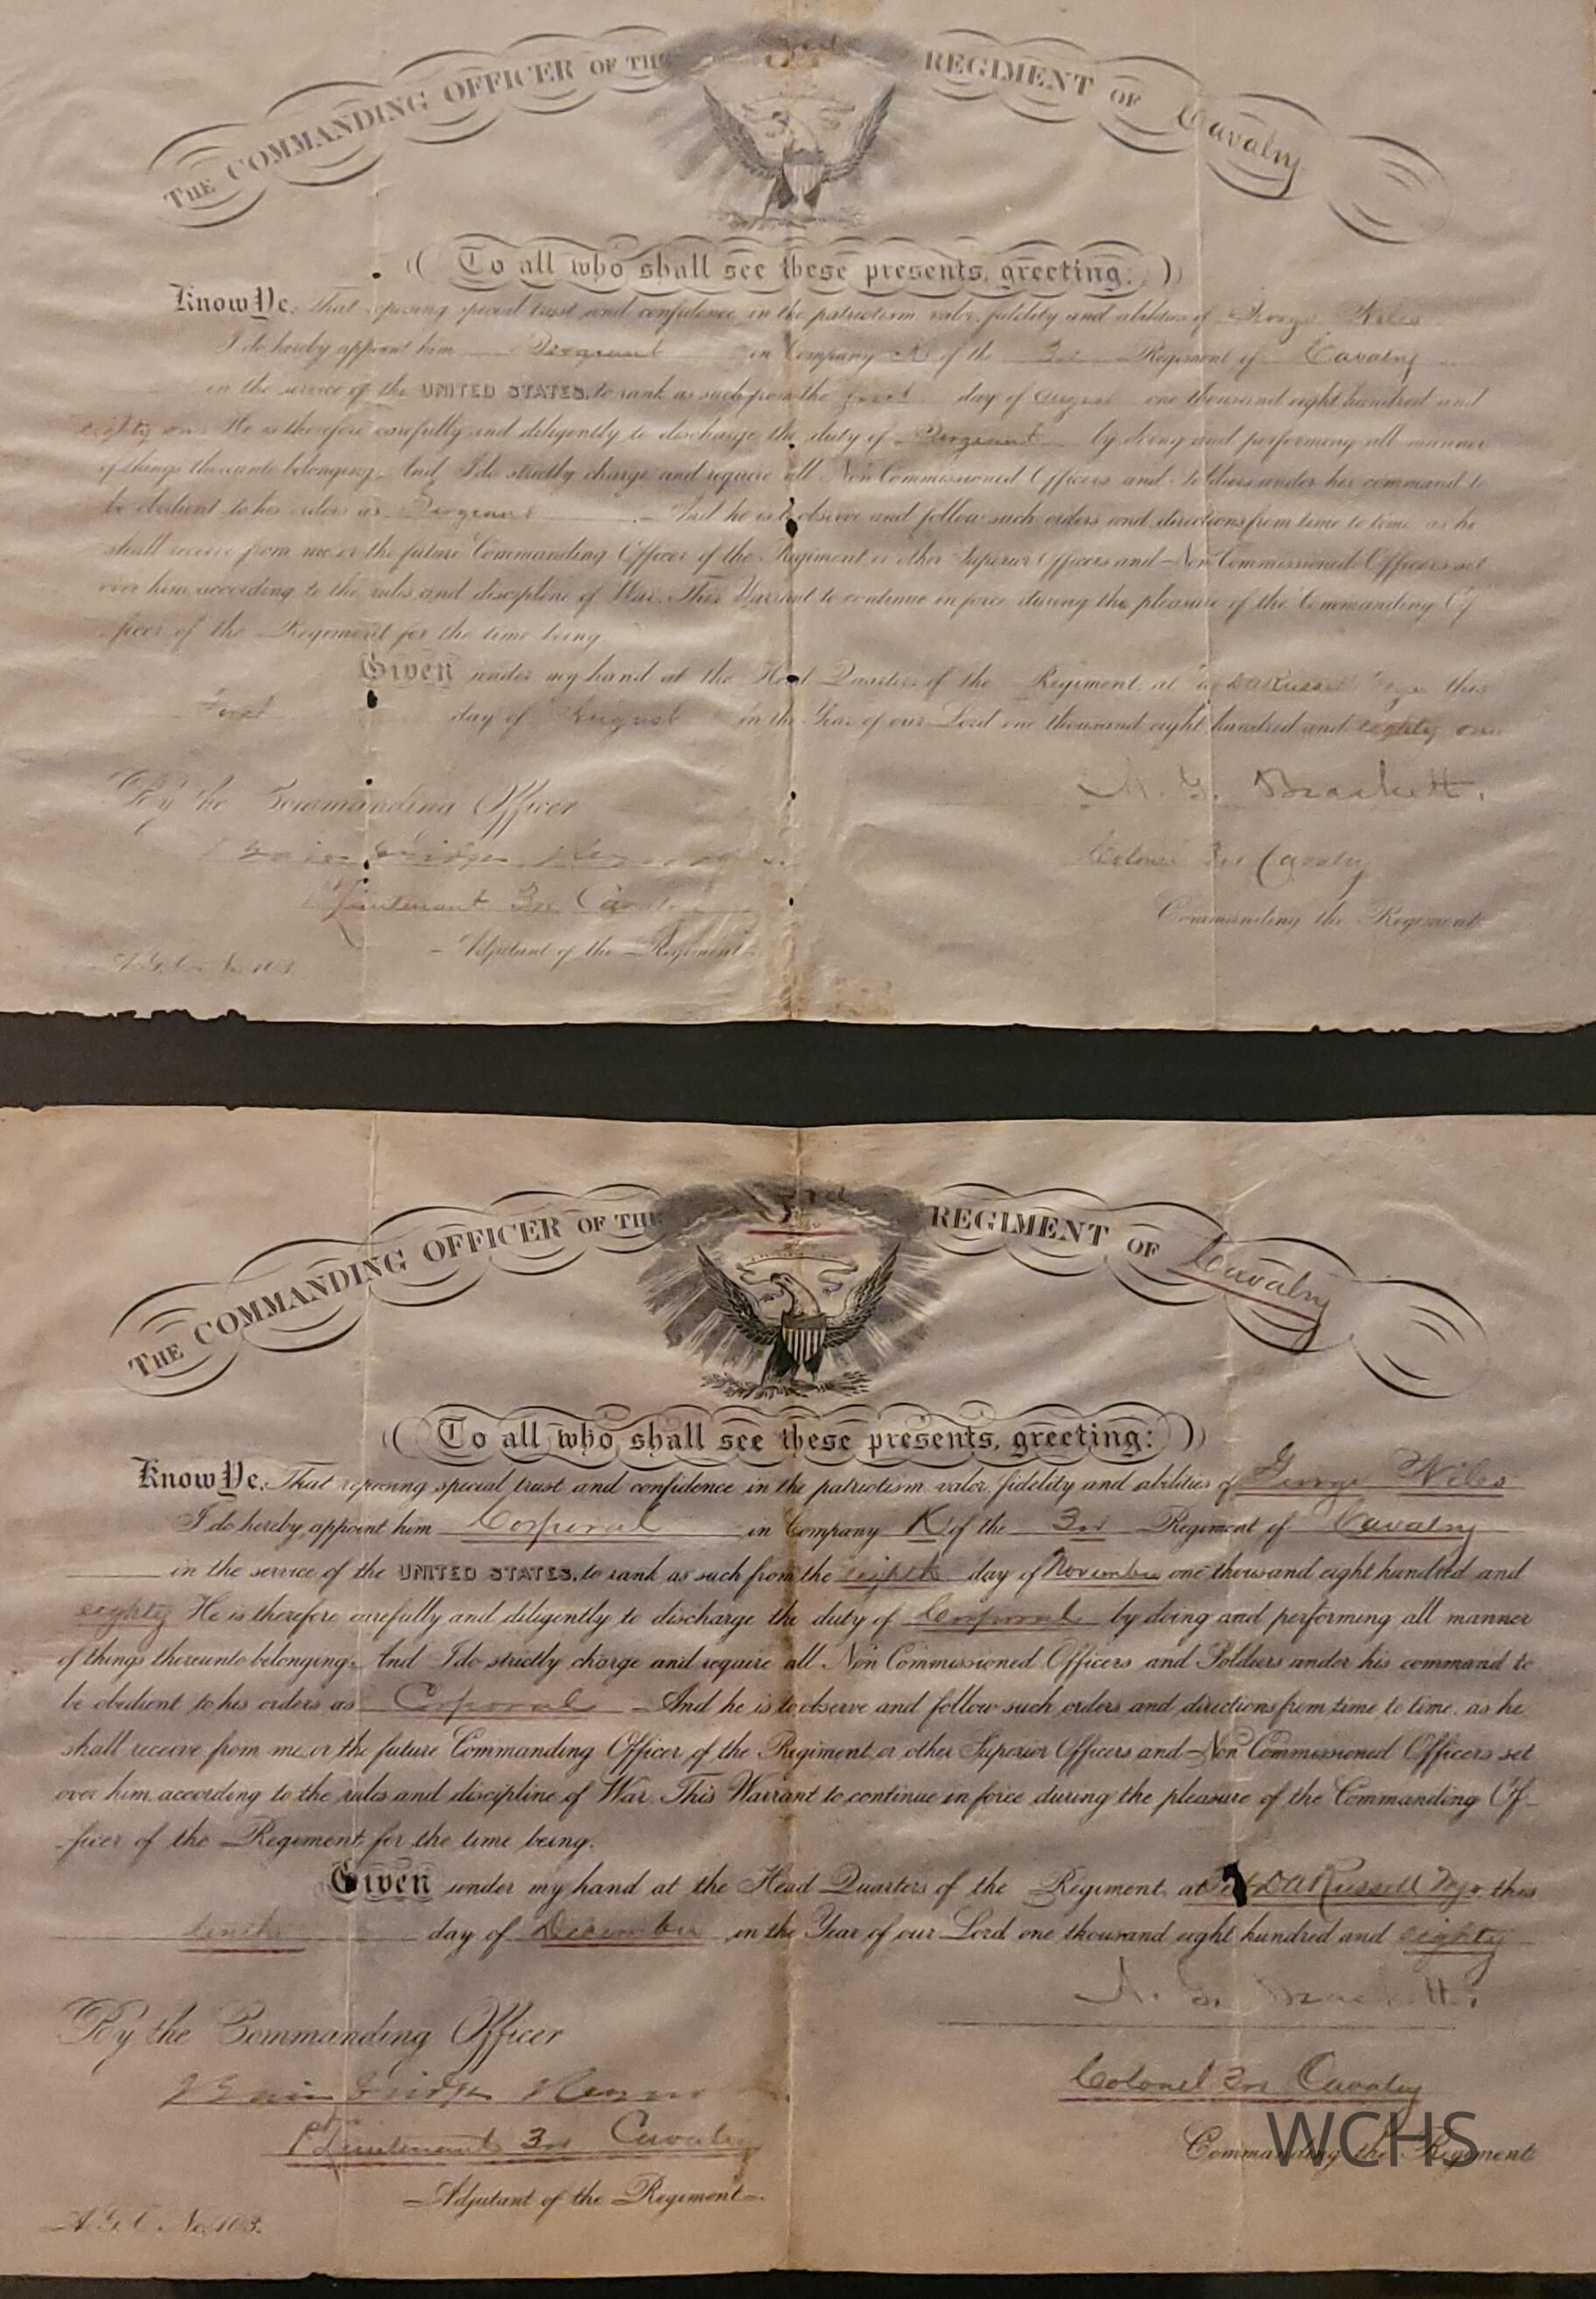 THE COMMANDING OFFICER OF THE 3rd REGIMENT OF Cavalry
To all who shall see these presents, greeting:
Know Ye, That reposing special trust and confidence in the patriotism, valor, fidelity and abilities of George Niles
I do hereby appoint him Sergeant in Company K of the 3rd Regiment of Cavalry
in the service of the UNITED STATES, to rank as such from the first day of August one thousand eight hundred and
eighty one He is therefore carefully and diligently to discharge the duty of Sergeant by doing and performing all manner
of things thereunto belonging. And I do strictly charge and require all Non Commissioned Officers and Soldiers under his command to
be obedient to his orders as Sergeant And he is to observe and follow such orders and directions from time to time, as he
shall receive from me, or the future Commanding Officer of the Regiment or other Superior Officers and Non Commissioned Officers set
over him, according to the rules and discipline of War. This Warrant to continue in force during the pleasure of the Commanding Of-
-ficer of the Regiment for the time being.
Given under my hand at the Head Quarters of the Regiment, at D A Russell Wyo this
First day of August in the Year of our Lord one thousand eight hundred and eighty one
A. G. Brackett.
By the Commanding Officer
Colonel 3rd Cavalry
Lieutenant 3rd Cavalry
Commanding the Regiment
Adjutant of the Regiment
A.G.O. No. 103.
THE COMMANDING OFFICER OF THE 3rd REGIMENT OF Cavalry
To all who shall see these presents, greeting:
Know Ye, That reposing special trust and confidence in the patriotism, valor, fidelity and abilities of George Niles
I do hereby appoint him Corporal in Company K of the 3rd Regiment of Cavalry
in the service of the UNITED STATES, to rank as such from the eighth day of November one thousand eight hundred and
eighty He is therefore carefully and diligently to discharge the duty of Corporal by doing and performing all manner
of things thereunto belonging. And I do strictly charge and require all Non Commissioned Officers and Soldiers under his command to
be obedient to his orders as Corporal And he is to observe and follow such orders and directions from time to time, as he
shall receive from me, or the future Commanding Officer of the Regiment, or other Superior Officers and Non Commissioned Officers set
over him, according to the rules and discipline of War. This Warrant to continue in force during the pleasure of the Commanding Of-
-ficer of the Regiment, for the time being.
Given under my hand at the Head Quarters of the Regiment, at D A Russell Wyo. this
tenth day of December in the Year of our Lord one thousand eight hundred and eighty
A. G. Brackett.
By the Commanding Officer
Colonel 3rd Cavalry
1st Lieutenant 3rd Cavalry
WCHS
Commanding the Regiment
Adjutant of the Regiment
A.G.O. No. 103.